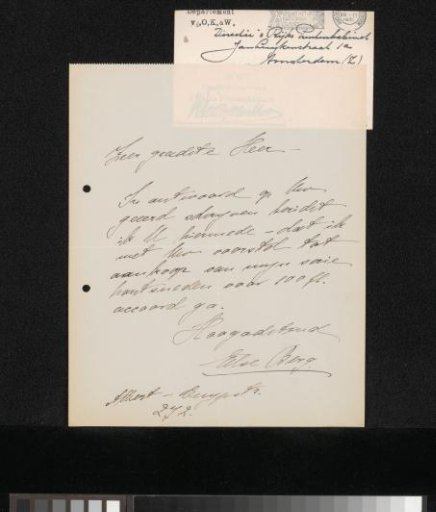 Departement
v.O.K.&W.
Directie's Rijks Prentenkabinet
Jan Luykenstraat 1a
Amsterdam (Z)
Zeer geachte Heer –
In antwoord op Uw
geeerd schrijven bericht
ik U hiermede – dat ik
met Uw voorstel tot
aankoop van mijn
houtsneden voor 100 fl.
accoord ga.
Hoogachtend
Else Berg.
Albert – Cuypstr.
272.